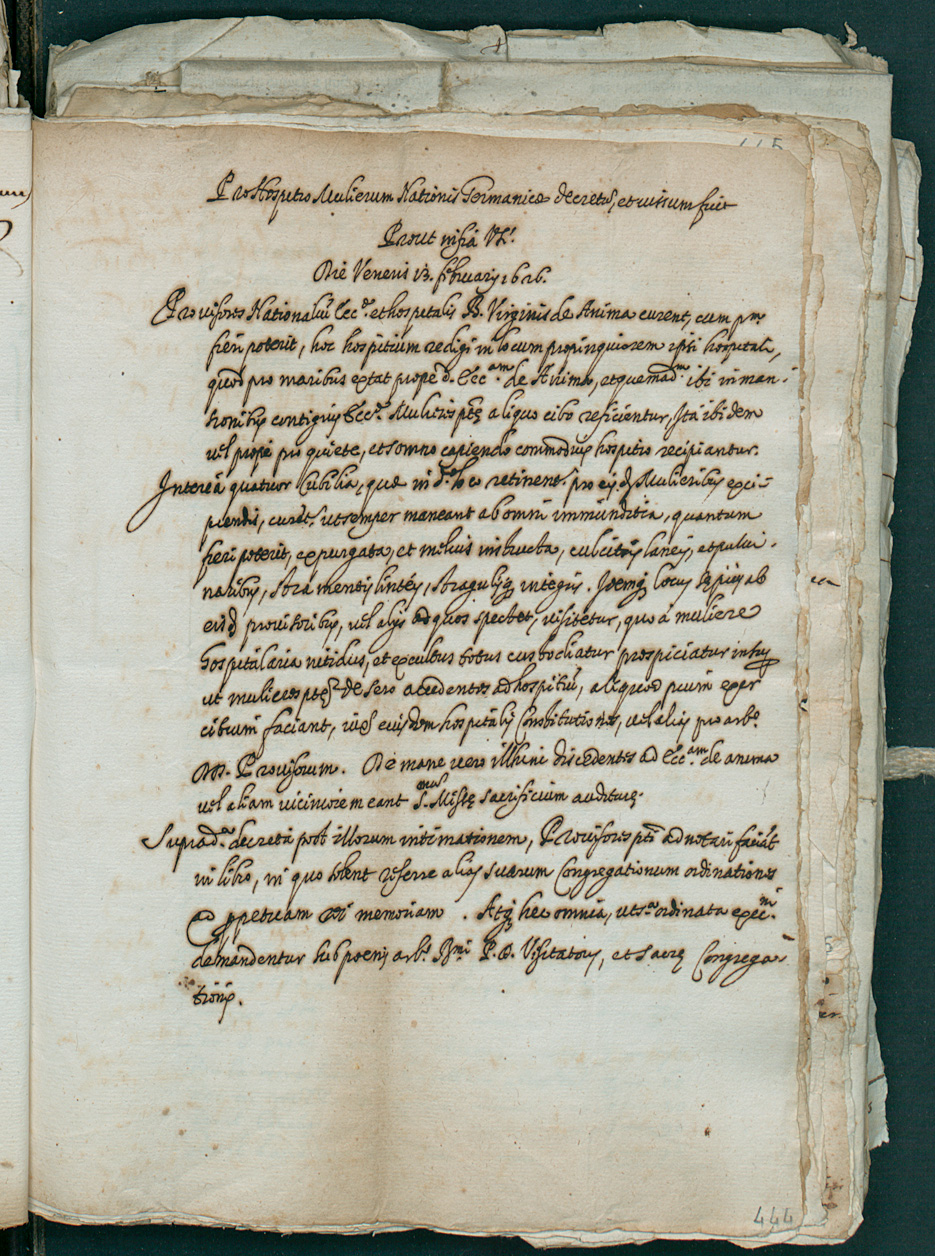 115
Pro Hospitio Mulierum Nationis Germanicæ decretũ, et iussum fuit
Prout infrà Vz.ᵗ
Die Veneris 13. februarij 1626.
Provisores Nationalis Ecc.ᵉ et hospitalis B. Virginis de Anima curent, cum pm̃
fieri poterit, hoc hospitium redigi in locum propinquiorem ipsi hospitali,
quod pro maribus extat prope d. Ecc.ᵃᵐ de Anima, et quemad.ᵐ ibi in man-
sionibus contiguis Ecc.ᵉ Mulieres ptẽ aliquo cibo reficientur, Ità ibidem
vel propè pro quiete, et somno capiendo commodius hospitio recipiantur.
Intereà quatuor Cubilia, quæ in d.º loco retinent. pro eisd. Mulieribus exci-
piendis, curẽt, ut semper maneant ab omni immunditia, quantum
fieri poterit, expurgata, et melius instructa, culcitris laneis, et pului-
naribus, stramentis linteis, stragulisq; integris. Idemq; locus sæpius ab
eisd. provisoribus, vel alijs ad quos spectet, visitetur, quo à muliere
hospitalaria nitidus, et excultus totus custodiatur prospiciatur
ut mulieres ptẽ de sero accedentes ad hospitiũ, aliquod pium exer
citium faciant, iux̃ eiusdem hospitalis Constitutiones, vel aliis pro arb.º
DD. Provisorum. De mane vero illinc discedentes ad Ecc.ᵃᵐ de anima
vel aliam viciniorem eant S.ᵐᵘᵐ Missę sacrificium auditurę.
Suprad.ᵃ decreta post illorum intimationem, Provisores ptĩ adnotari faciãt
in libro, in quo solent referre alias suarum Congregationum ordinationes
ad ppetuam rei memoriam. Atq; hec omnia, ut s.ᵃ ordinata exec.ⁿⁱ
demandentur sub poenis arb.º Rᵐⁱ P. D. Visitatoris, et Sacrę Congrega-
tionis.
444